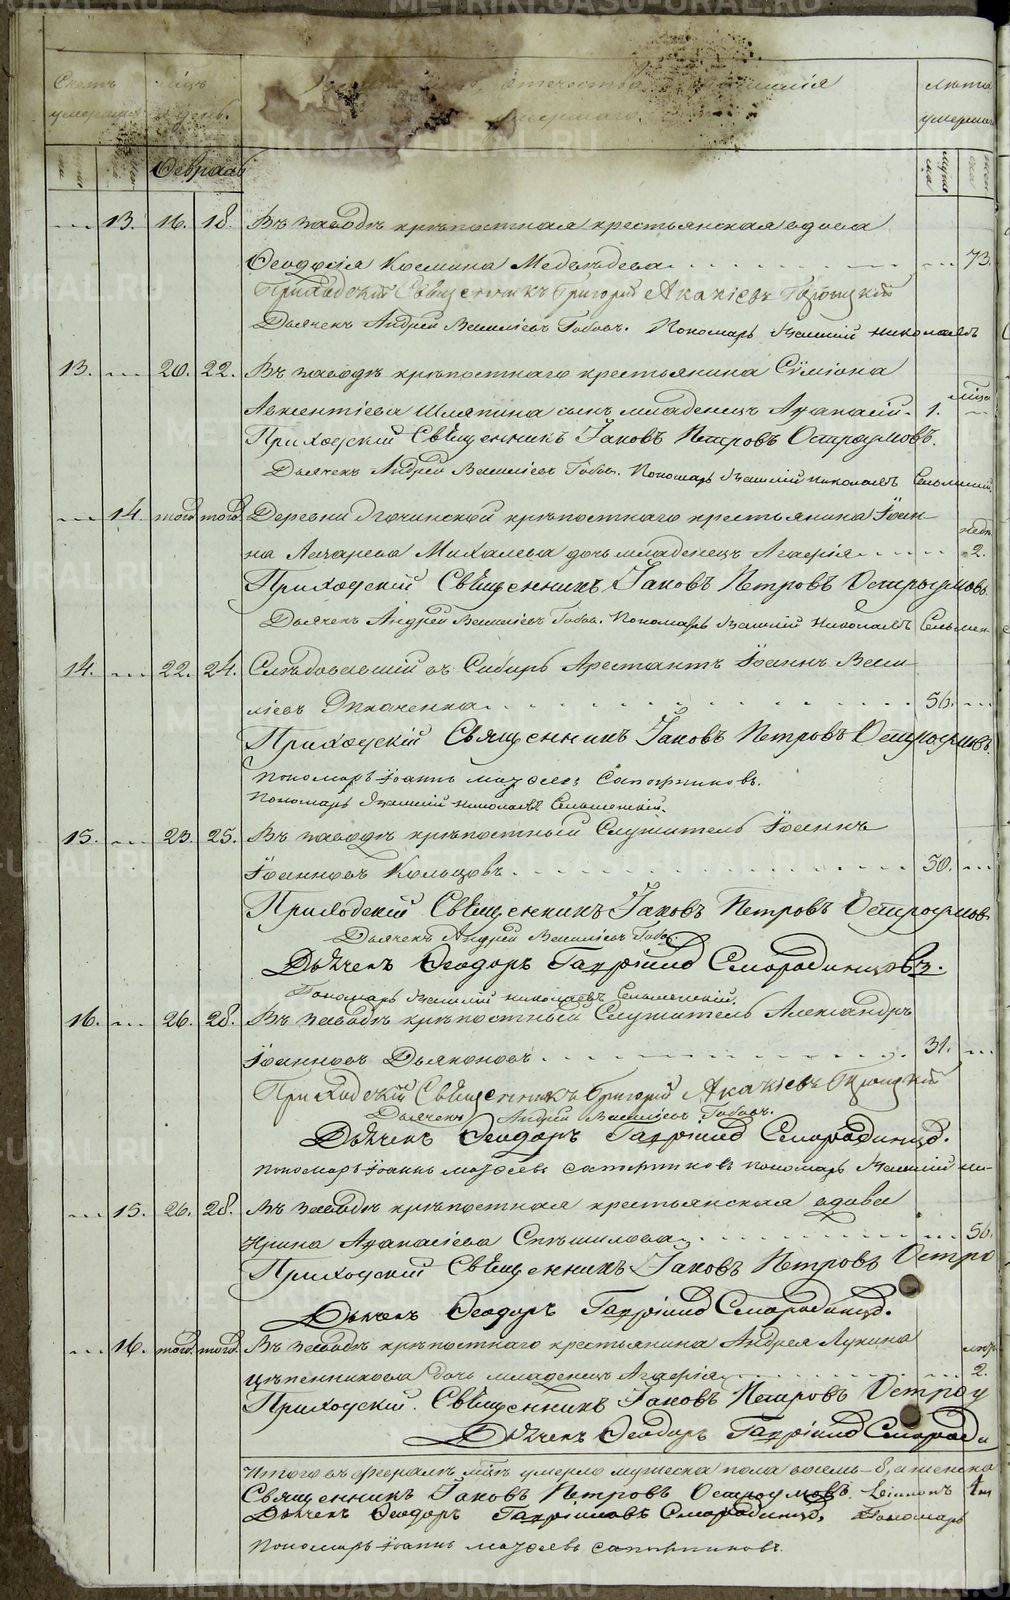 Счетъ умершихъ
Мѣсяцъ и день.
отчество и фамилія
умершаго.
лѣта умершаго
Февраль
13. 16. 18. Въ заводѣ крѣпостная крестьянская вдова
Ѳеодосія Космина Медвѣдева 73.
Приходскій Священникъ Григорій Акакіевъ Троицкій
Дьячекъ Андрей Василіевъ Пономарь Василій Николаевъ
13. 20. 22. Въ заводѣ крѣпостнаго крестьянина Сѵмеона
Авксентіева Шляпина сынъ младенецъ Аѳанасій 1. мѣсц
Приходскій Священникъ Іаковъ Петровъ Остроумовъ.
Дьячекъ Андрей Василіевъ Пономарь Василій Николаевъ
14. того того Деревни крѣпостнаго крестьянина Іоан-
на Михалева дочь младенецъ Агафія нед. 2.
Приходскій Священникъ Іаковъ Петровъ Остроумовъ
Дьячекъ Андрей Василіевъ Пономарь Василій Николаевъ
14. 22. 24. Слѣдовавшій въ Сибирь Арестантъ Іоаннъ Васи-
ліевъ 56.
Приходскій Священникъ Іаковъ Петровъ Остроумовъ.
Пономарь Іоаннъ Моѵсеевъ Сапожниковъ.
Пономарь Василій Николаевъ
15. 23. 25. Въ заводѣ крѣпостный Служитель Іоаннъ
Іоанновъ Кольцовъ 50.
Приходскій Священникъ Іаковъ Петровъ Остроумов
Дьячекъ Андрей Василіевъ
Дьячекъ Ѳеодоръ Гавріиловъ Смородинцовъ.
Пономарь Василій Николаевъ
16. 26. 28. Въ заводѣ крѣпостный Служитель Александръ
Іоанновъ Дьяконовъ 31.
Приходскій Священникъ Григорій Акакіевъ Троицкій
Дьячекъ Андрей Василіевъ
Дьячекъ Ѳеодоръ Гавріиловъ Смородинцовъ.
Пономарь Іоаннъ Моѵсеевъ Сапожниковъ Пономарь Василій Ни-
15. 26. 28. Въ заводѣ крѣпостная крестьянская вдова
Ирина Аѳанасіева 56.
Приходскій Священникъ Іаковъ Петровъ Остро
Дьячекъ Ѳеодоръ Гавріиловъ Смородинцовъ.
16. того того Въ заводѣ крѣпостнаго крестьянина Андрея Лукина
Цѣпенникова дочь младенецъ Агафія 2.
Приходскій Священникъ Іаковъ Петровъ Остроу
Дьячекъ Ѳеодоръ Гавріиловъ Смороди
Итого въ февралѣ мѣсяцѣ умерло мужеска пола восемь 8, а женска
Священникъ Іаковъ Петровъ Остроумовъ.
Дьячекъ Ѳеодоръ Гавріиловъ Смородинцовъ Пономарь
Пономарь Іоаннъ Моѵсеевъ Сапожниковъ.
METRIKI.GASO-URAL.RU